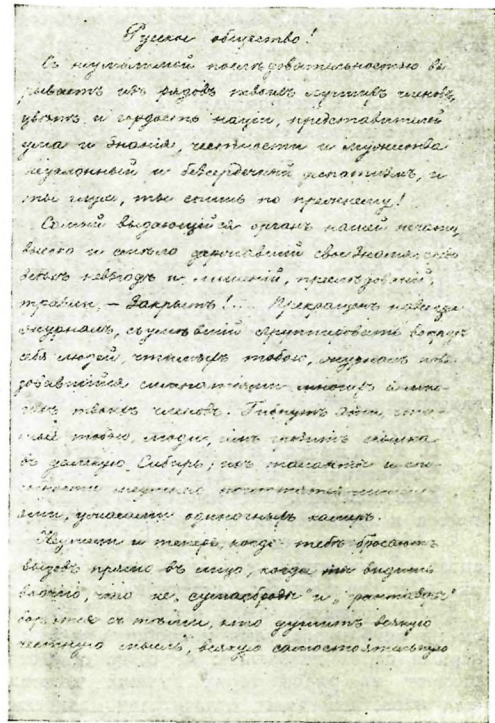 Русское общество!
Съ неумолимой последовательностью вы
рываетъ изъ рядовъ твоихъ лучшихъ членовъ,
цвѣтъ и гордость націи, представителей
ума и знанія, честности и мужества
неуклонный и безсердечный деспотизмъ, и
ты глухо, ты спишь по прежнему!
Самый выдающійся органъ нашей печати,
высоко и смѣло державшій свое знамя, среди
всѣхъ невзгодъ и лишеній, преслѣдованій,
травли, — Закрытъ!... Прекращенъ навсегда
журналъ, съумѣвшій группировать вокругъ
себя людей, чтимыхъ тобою, журналъ поль
зовавшійся симпатіями многихъ и мно
гихъ твоихъ членовъ. Гибнутъ эти, чти
мые тобою, люди, имъ грозитъ ссылка
въ далекую Сибирь; ихъ таланты и спо
собности
ями, ужасами одиночныхъ камеръ.
Неужели и теперь, когда тебѣ бросаютъ
вызовъ прямо въ лицо, когда ты видишь
воочію, что не „сумасброды" и
борются съ тѣми, кто душитъ всякую
честную мысль, всякую самостоятельную